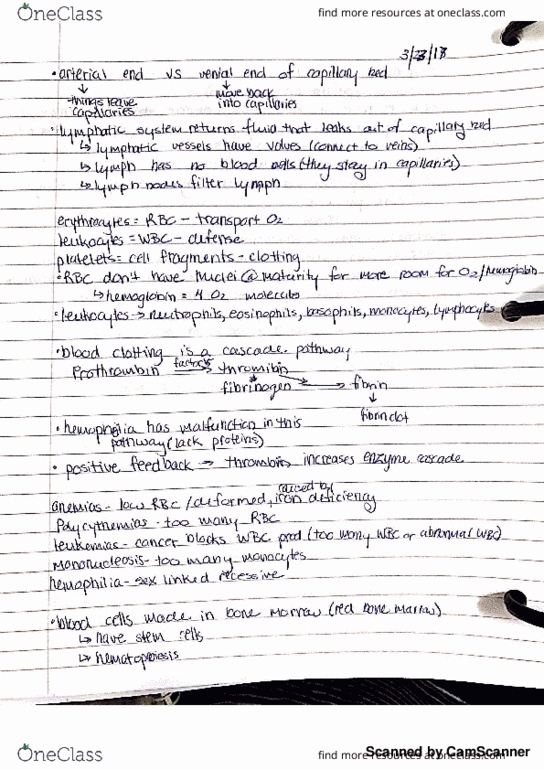 OneClass
find more resources at oneclass.com
3/23/18
• arterial end vs venial end of capillary bed
things leave capillaries
move back into capillaries
• lymphatic system returns fluid that leaks out of capillary bed
↳ lymphatic vessels have valves (connect to veins)
↳ lymph has no blood cells (they stay in capillaries)
↳ lymph nodes filter lymph
erythrocytes = RBC - transport O2
leukocytes = WBC - defense
platelets = cell fragments - clotting
• RBC don't have nuclei @ maturity for more room for O2/hemoglobin
↳ hemoglobin = 4 O2 molecules
• leukocytes → neutrophils, eosinophils, basophils, monocytes, lymphocytes
• blood clotting is a cascade pathway
Prothrombin factors → thrombin
fibrinogen → fibrin
↓
fibrin clot
• hemophilia has malfunction in this
pathway (lack proteins)
• positive feedback → thrombin increases enzyme cascade
caused by
anemias - low RBC / deformed, iron deficiency
Polycythemias - too many RBC
leukemias - cancer blocks WBC prod. (too many WBC or abnormal WBC)
Mononucleosis - too many monocytes
hemophilia - sex linked recessive
• blood cells made in bone marrow (red bone marrow)
↳ have stem cells
↳ hematopoiesis
OneClass
find more resources at oneclass.com
Scanned by CamScanner